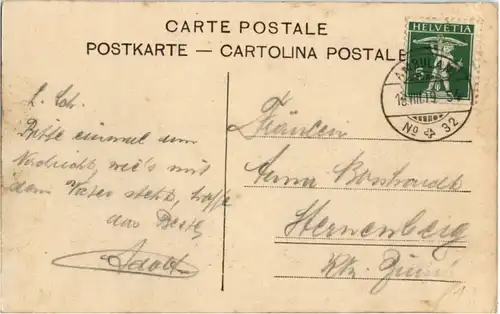 CARTE POSTALE
POSTKARTE — CARTOLINA POSTALE
HELVETIA
5
AMBULANT
No 32
L. Sch.
Bitte einmal um
Nachricht, wie's mit
dem Vater steht, hoffe
das Beste,
Adolf
Fräulein
Anna Bosshardt
Sternenberg
Kt. Zürich